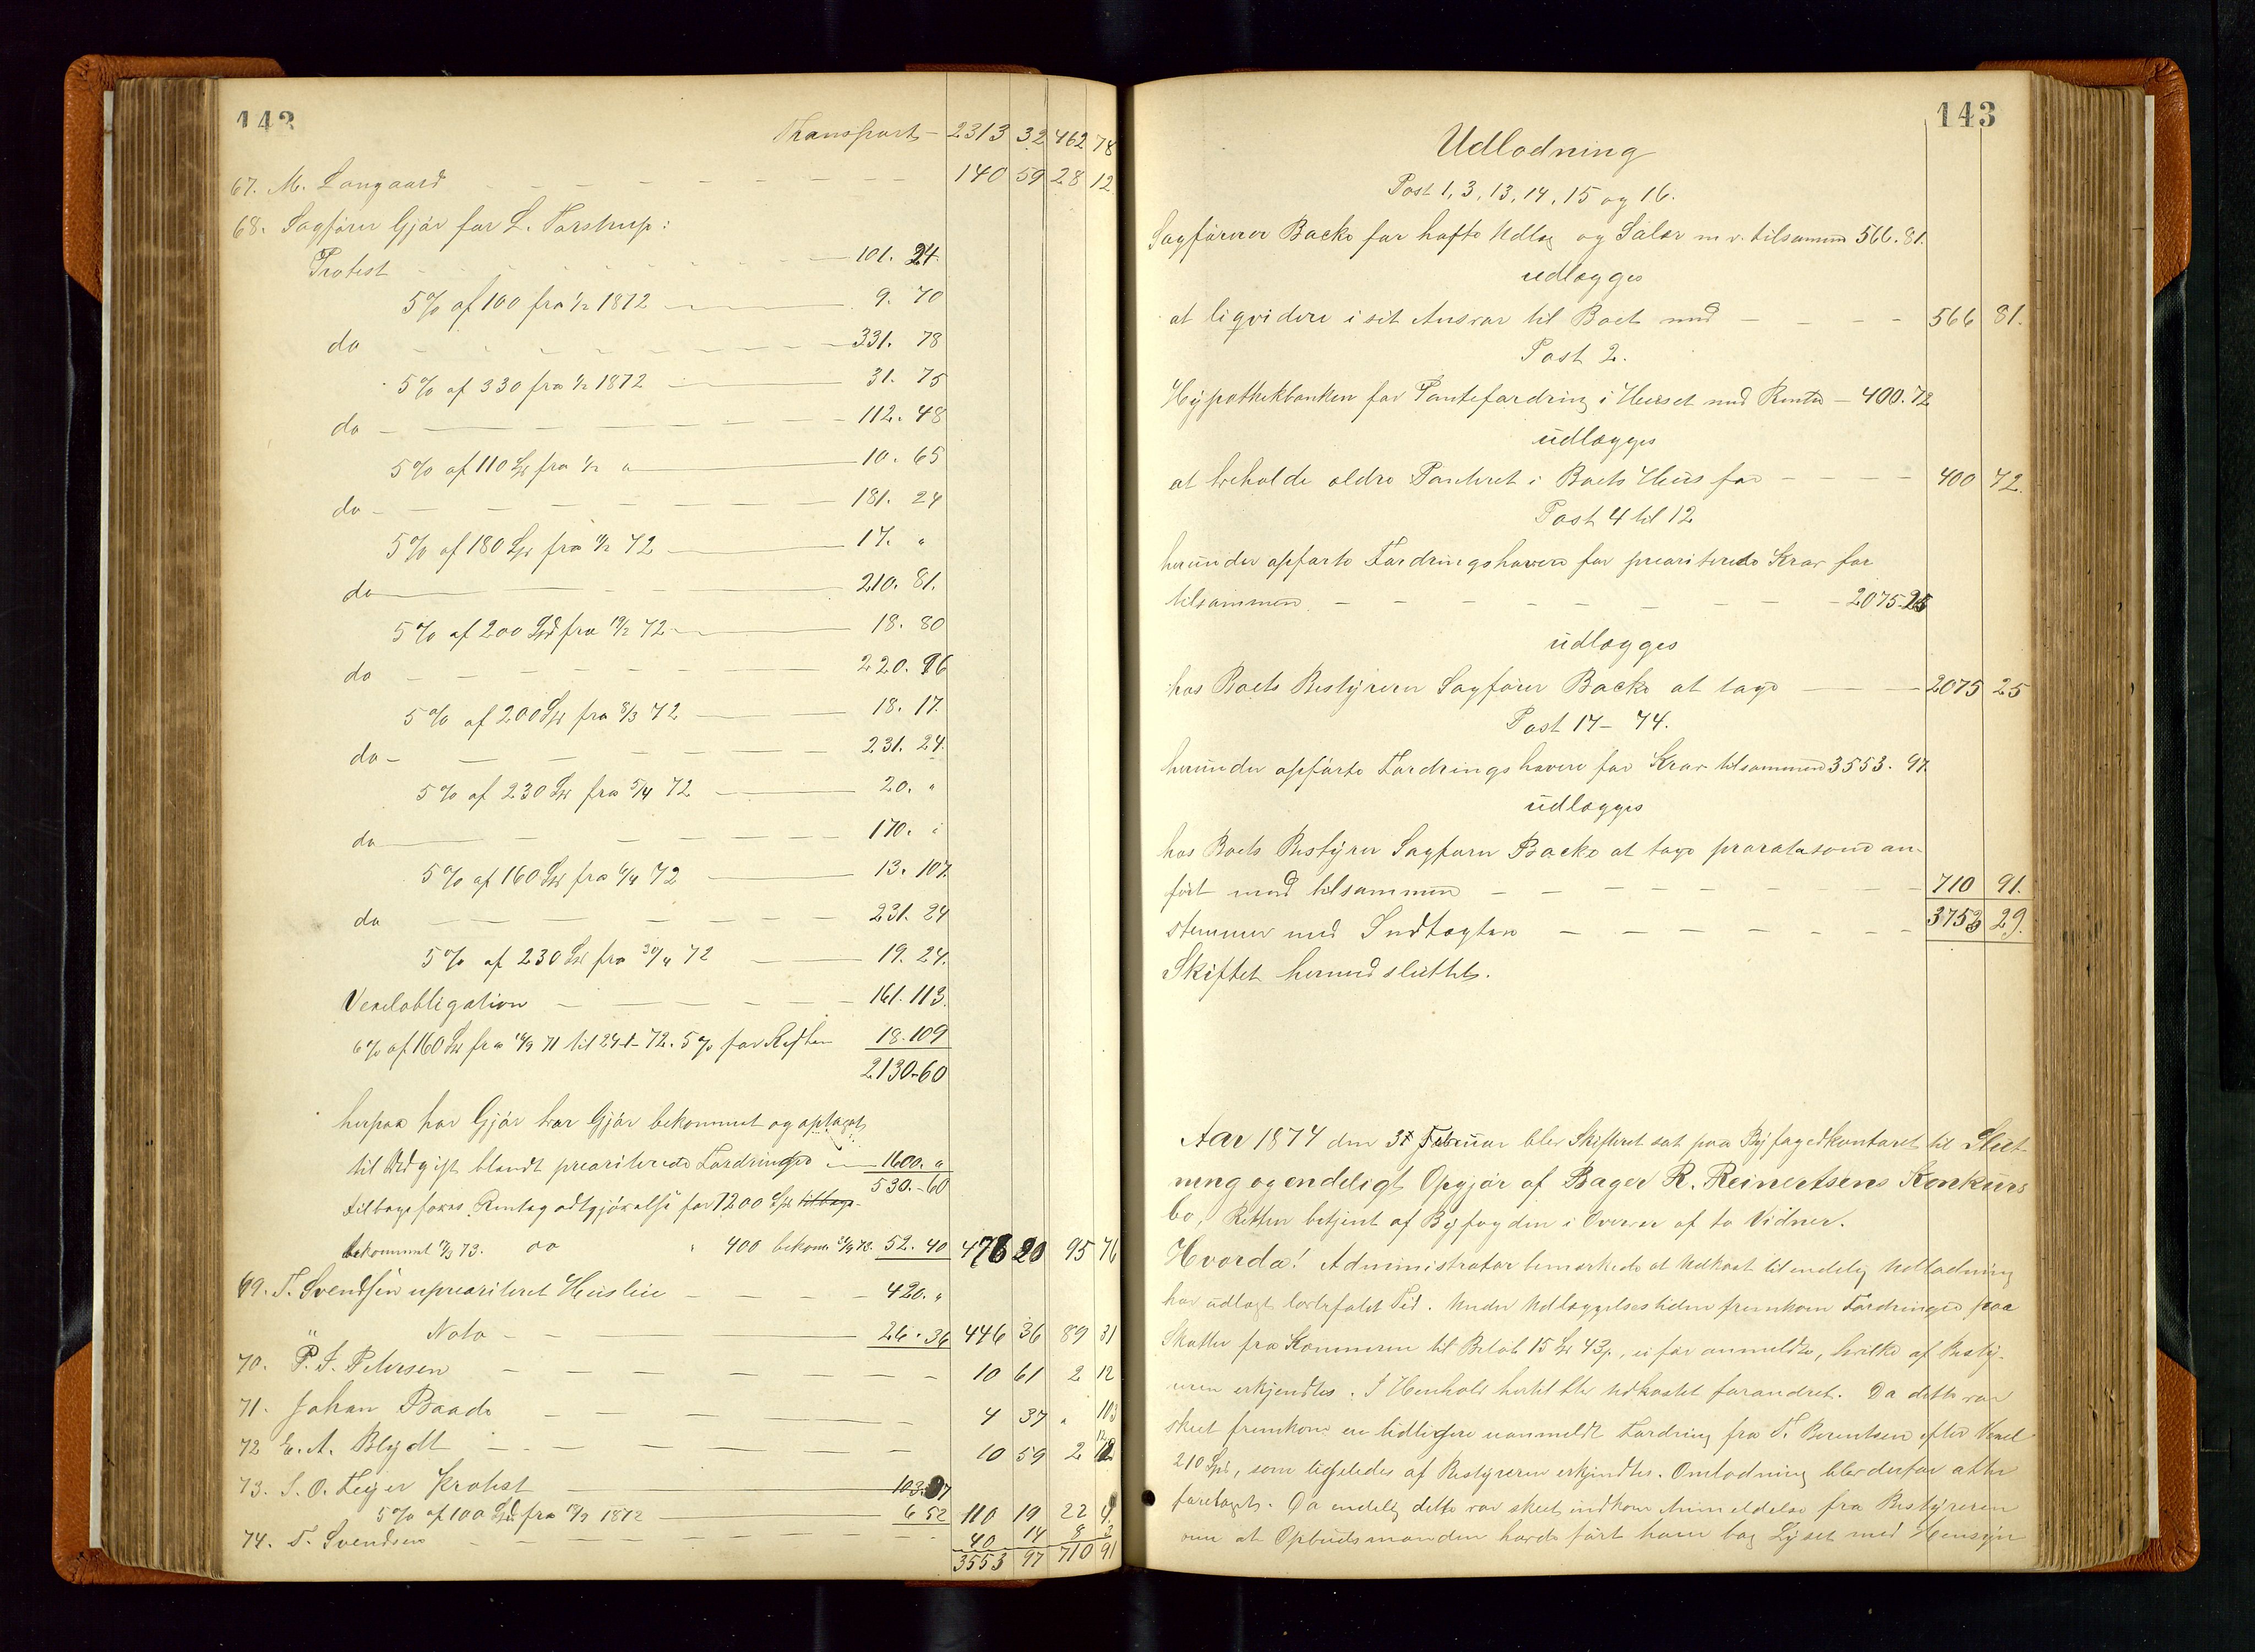 143
Transport - 2313 32 462 78
67. M. Langaard - - - - - - - 140 59 28 12
68. Sagfører Gjør for L. Torstrup:
Protest - - - - - - - 101. 24
5% af 100 fra 1/2 1872 - 9. 70
do - - - - - - - 331. 78
5% af 330 fra 1/2 1872 - 31. 75
do - - - - - - - 112. 48
5% af 110 Spd fra 1/2 " - 10. 65
do - - - - - - - 181. 24
5% af 180 Spd fra 1/2 72 - 17. "
do - - - - 210. 81.
5% af 200 Spd fra 19/2 72 - 18. 80
do - - - - - - 220. 96
5% af 200 Spd fra 8/3 72 - 18. 17.
do - - - - - - 231. 24.
5% af 230 Spd fra 5/4 72 - 20. "
do - - - - - - 170. "
5% af 160 Spd fra 6/4 72 - 13. 107.
do - - - - - - 231. 24
5% af 230 Spd fra 30/4 72 - 19. 24.
Vexelobligation - - - - - 161. 113.
6% af 160 Spd fra 14/9 71 til 24-1-72. 5% for Resten 18. 109
2130-60
herpaa har Gjør bekommet og optaget
til Udgift blandt prioriterede Fordringer - 1600. "
530.-60
tilbageføres Rentegodtgjørelse for 1200 Spd tilbage-
bekommet 17/3 73. do " 400 bekom. 73. 52. 40 478 20 95 76
69. T. Svendsen uprioriteret Husleie - - - - 420. "
" Nota - - - 26. 36 446 36 89 31
70. P. J. Petersen - - - - - - - 10 61 2 12
71. Johan Baade - - - - - - - 4 37 " 103
72 E. A. Blydt - - - - - - - 10 59 2 12
73. S. O. Leyer Protest - 103. 87
5% af 100 Spd fra 19/2 1872 - 6 52 110 19 22 4
74. T. Svendsen - - - - - - - 40 14 8 3
3553 97 710 91
143
Udlodning
Post 1, 3, 13, 14, 15 og 16.
Sagfører Backe for hafte Udlæg og Salær m. v. tilsammen 566. 81.
udlægges
at liqvidere i sit Ansvar til Boet med - - - - 566 81.
Post 2.
Hypothekbanken for Pantefordring i Huset med Renter - 400. 72
udlægges
at beholde ældre Panteret i Boets Huus for - - - - 400 72.
Post 4 til 12
herunder opførte Fordringshavere for prioriterede Krav for
tilsammen - - - - - - - - 2075-25
udlægges
hos Boets Bestyrer Sagfører Backe at tage - - - 2075 25
Post 17 - 74.
herunder opførte Fordringshavere for Krav tilsammen 3553. 97.
udlægges
hos Boets Bestyrer Sagfører Backe at tage prorata som an-
ført med tilsammen - - - - - - - - 710 91.
stemmer med Indtægten - - - - - - 3753 29.
Skiftet hermed sluttet.
Aar 1874 den 3 Februar blev Skifteret sat paa Byfogedkontoret til Slut-
ning og endeligt Opgjør af Bager R. Reinertsens Konkurs
bo, Retten betjent af Byfogden i Overvær af to Vidner.
Hvorda! Administrator bemærkede at Udkast til endelig Udlodning
har udlagt lovbefalet Tid. Under Udlæggelsestiden fremkom Fordringer paa
Skatter fra Kommunen til Beløb 15 Spd 43 s, ei før anmeldte, hvilke af Besty-
reren erkjendtes. I Henhold hertil blev Udkastet forandret. Da dette var
skeet fremkom en tidligere uanmeldt Fordring fra T. Berentsen efter Vexel
210 Spd, som ligeledes af Bestyreren erkjendtes. Omlodning blev derfor atter
foretaget. Da endelig dette var skeet indkom Anmeldelse fra Bestyreren
om at Opbudsmanden havde ført ham bag Lyset med Hensyn